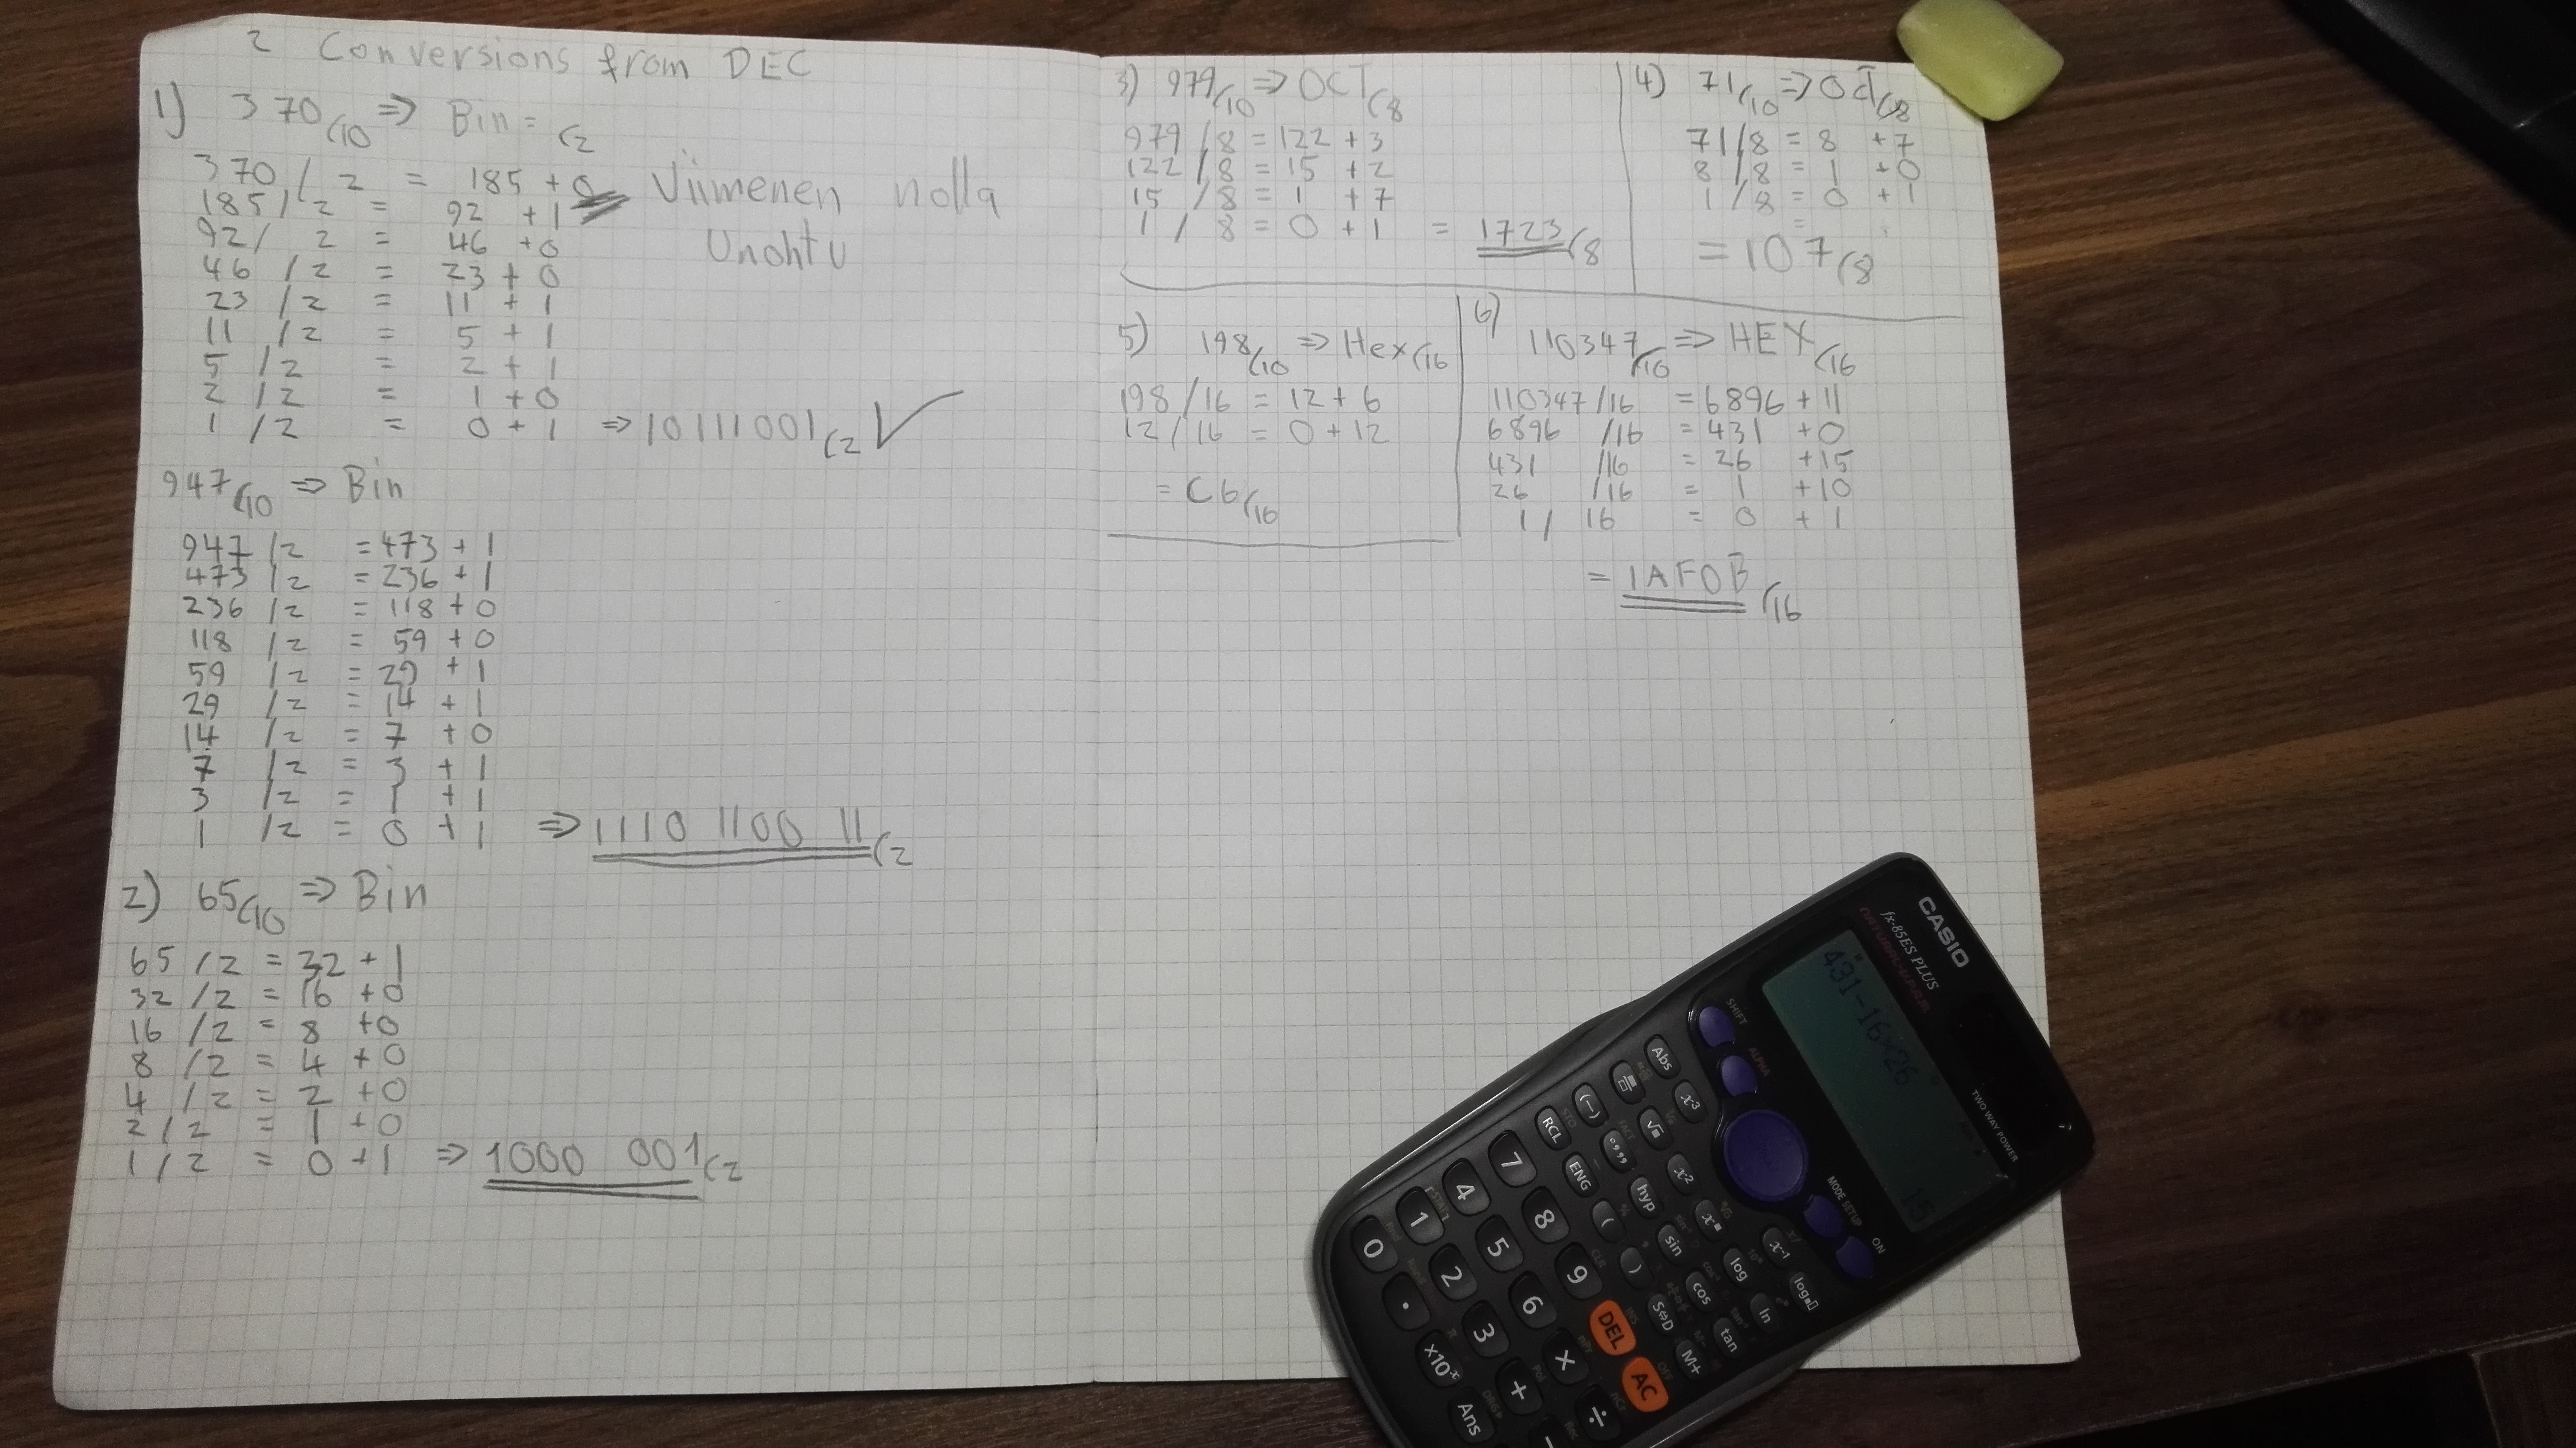 2 Conversions from DEC
1) 370(10 => Bin = (2
370 / 2 = 185 + 0 Viimenen nolla
185 / 2 = 92 + 1 Unohtu
92 / 2 = 46 + 0
46 / 2 = 23 + 0
23 / 2 = 11 + 1
11 / 2 = 5 + 1
5 / 2 = 2 + 1
2 / 2 = 1 + 0
1 / 2 = 0 + 1 => 10111001(2 ✓
947(10 => Bin
947 / 2 = 473 + 1
473 / 2 = 236 + 1
236 / 2 = 118 + 0
118 / 2 = 59 + 0
59 / 2 = 29 + 1
29 / 2 = 14 + 1
14 / 2 = 7 + 0
7 / 2 = 3 + 1
3 / 2 = 1 + 1
1 / 2 = 0 + 1 => 1110 1100 11(2
2) 65(10 => Bin
65 / 2 = 32 + 1
32 / 2 = 16 + 0
16 / 2 = 8 + 0
8 / 2 = 4 + 0
4 / 2 = 2 + 0
2 / 2 = 1 + 0
1 / 2 = 0 + 1 => 1000 001(2
3) 979(10 => OCT(8
979 / 8 = 122 + 3
122 / 8 = 15 + 2
15 / 8 = 1 + 7
1 / 8 = 0 + 1 = 1723(8
4) 71(10 => OCT(8
71 / 8 = 8 + 7
8 / 8 = 1 + 0
1 / 8 = 0 + 1
= 107(8
5) 198(10 => Hex(16
198 / 16 = 12 + 6
12 / 16 = 0 + 12
= C6(16
6)
110347(10 => HEX(16
110347 / 16 = 6896 + 11
6896 / 16 = 431 + 0
431 / 16 = 26 + 15
26 / 16 = 1 + 10
1 / 16 = 0 + 1
= 1AF0B(16
CASIO
fx-85ES PLUS
NATURAL-V.P.A.M.
TWO WAY POWER
431-16×26
15
SHIFT ALPHA MODE SETUP ON
Abs x³ x⁻¹ log
√ x² log ln
(-) °'" hyp sin cos tan
RCL ENG ( ) S⇔D M+
7 8 9 DEL AC
4 5 6 × ÷
1 2 3 + −
0 . ×10ˣ Ans